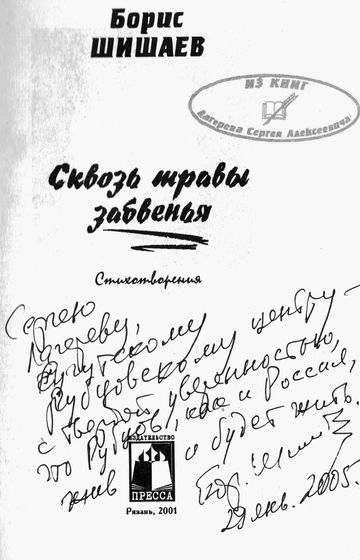 Борис
ШИШАЕВ
ИЗ КНИГ
Лагерева Сергея Алексеевича
Сквозь травы
забвенья
Стихотворения
Сергею
Лагереву,
Сургутскому
Рубцовскому центру -
с твердой уверенностью,
что Рубцов, как и Россия,
жив и будет жить.
ИЗДАТЕЛЬСТВО
ПРЕССА
Рязань, 2001
янв. 2005г.